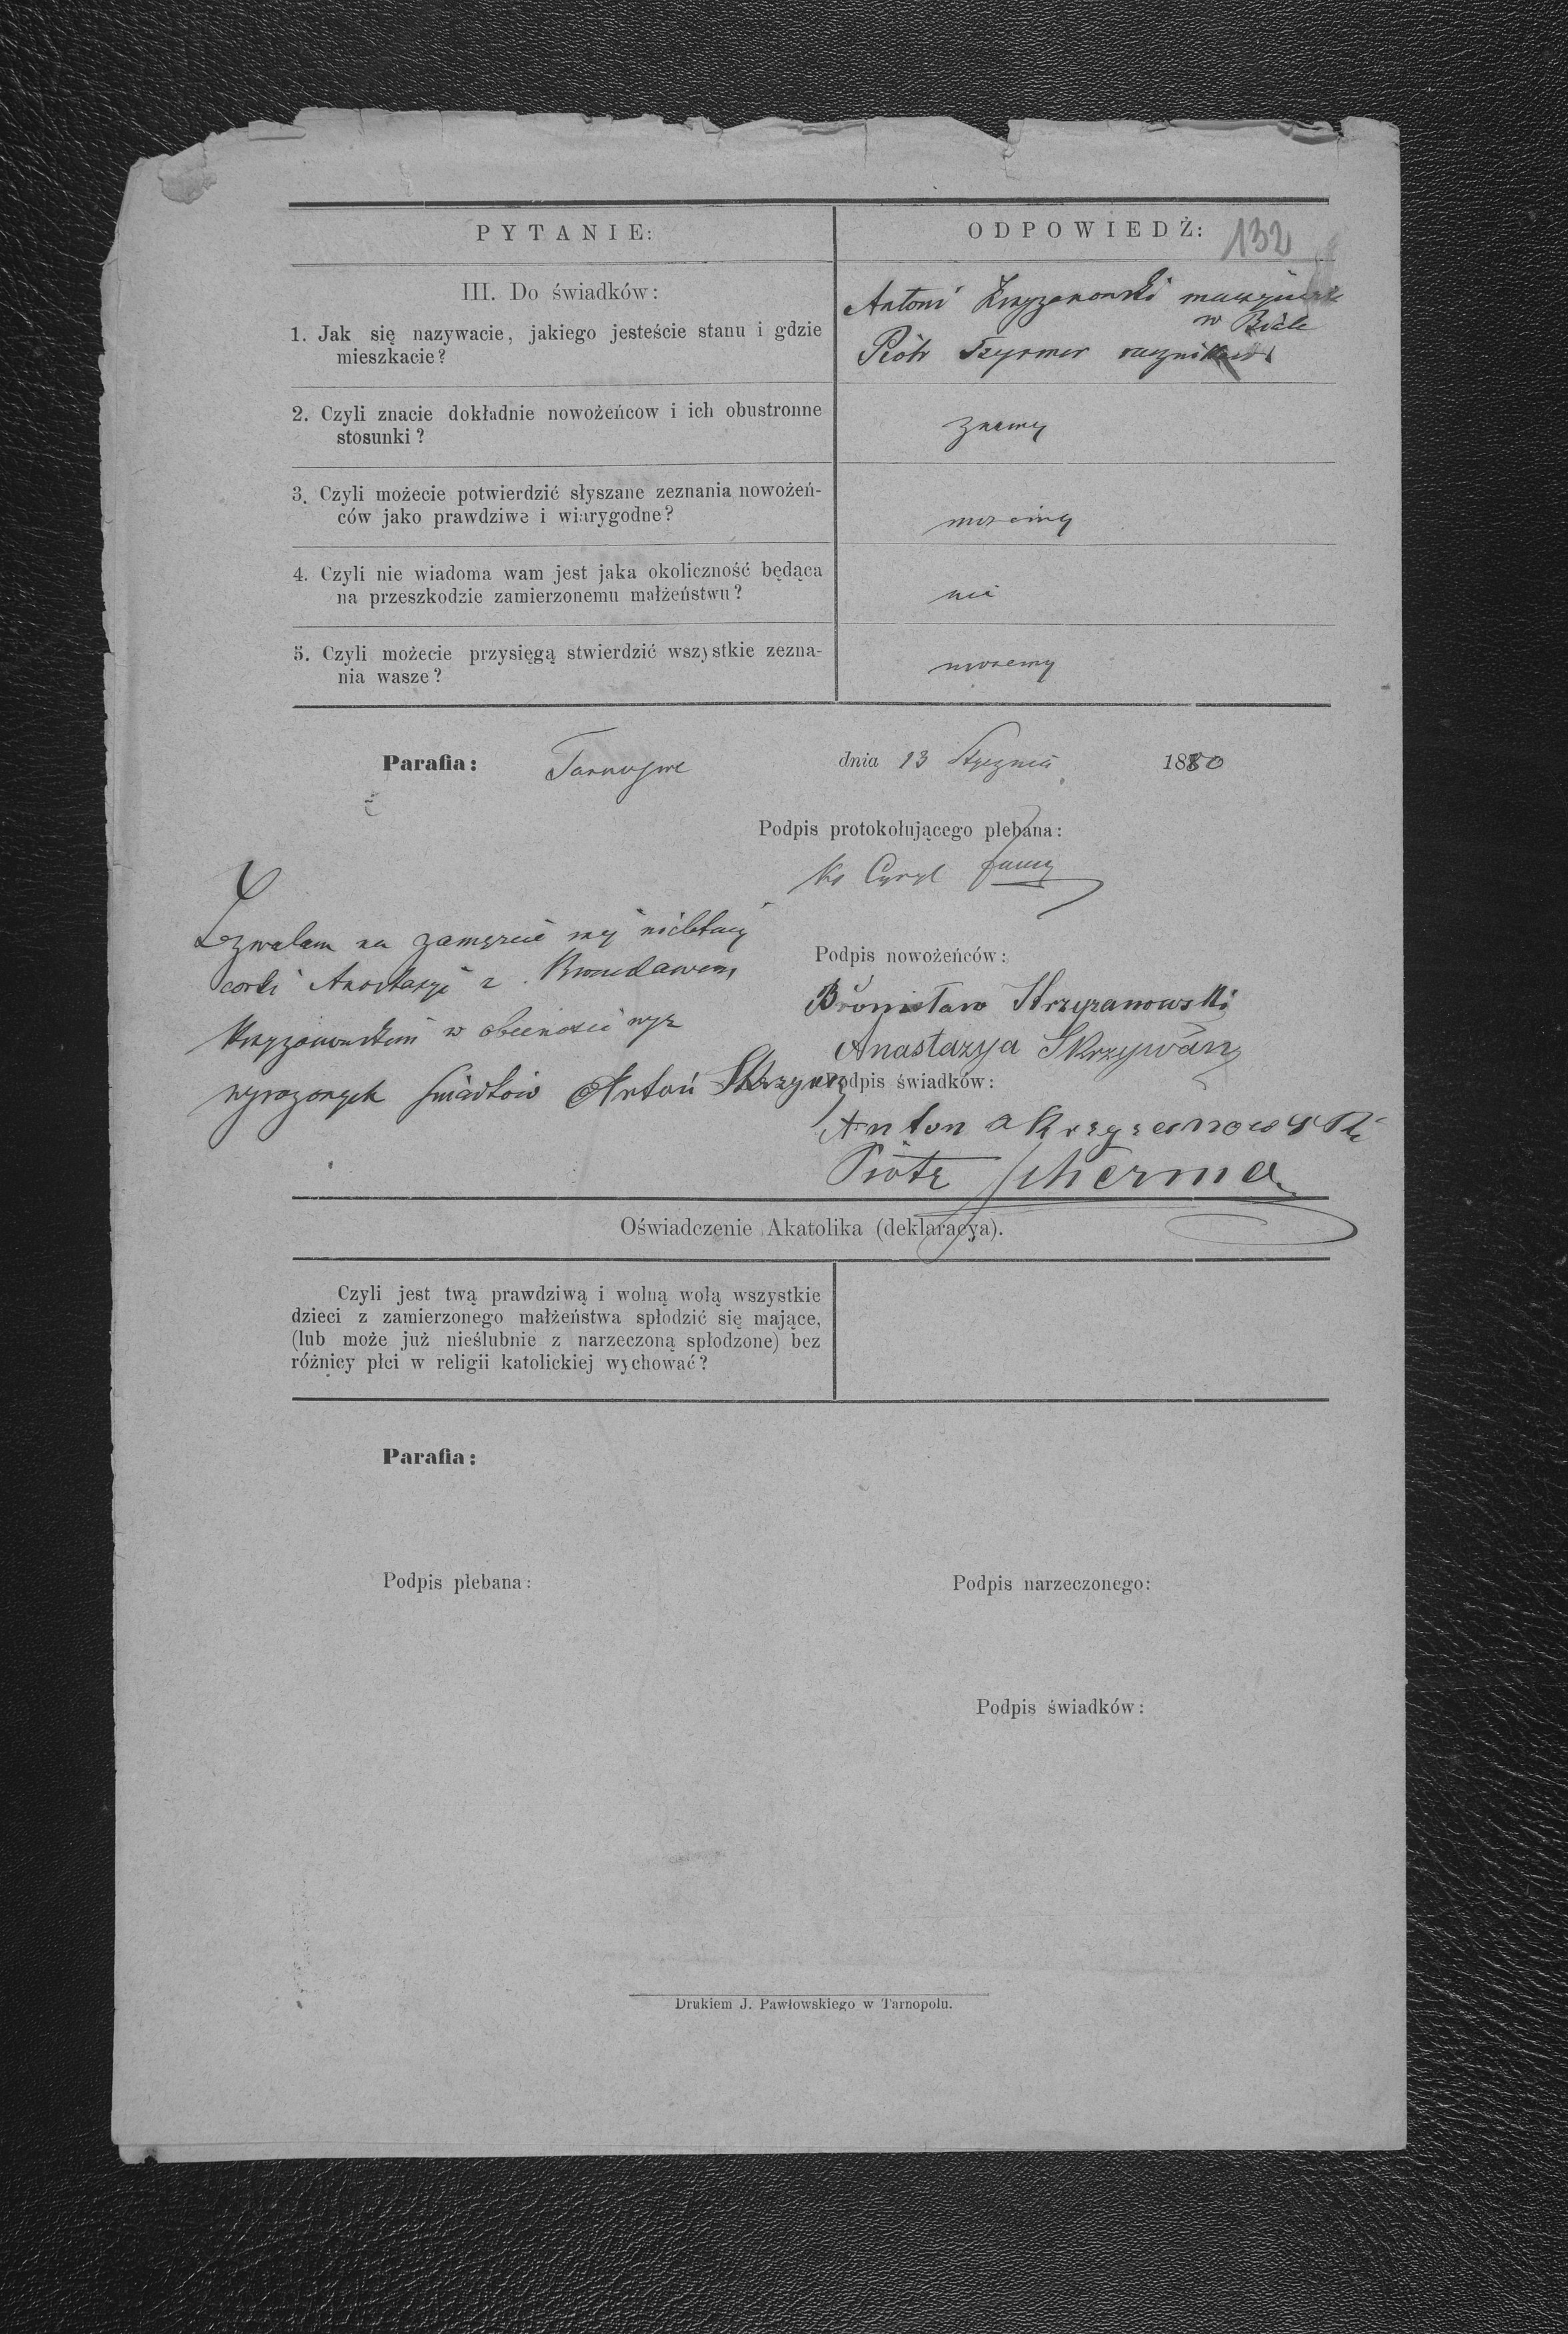 PYTANIE:
ODPOWIEDŹ:
132
III. Do świadków:
1. Jak się nazywacie, jakiego jesteście stanu i gdzie
mieszkacie?
Antoni
w
Piotr
2. Czyli znacie dokładnie nowożeńcow i ich obustronne
stosunki?
znamy
3. Czyli możecie potwierdzić słyszane zeznania nowożeń-
ców jako prawdziwe i wiarygodne?
mozemy
4. Czyli nie wiadoma wam jest jaka okoliczność będąca
na przeszkodzie zamierzonemu małżeństwu?
nie
5. Czyli możecie przysięgą stwierdzić wszystkie zezna-
nia wasze?
mozemy
Parafia:
dnia 13 Stycznia 1880
Podpis protokołującego plebana:
Ks Cyryl
Zezwalam na zamęzcie mej nieletniej
corki Anastazyi z Bronisławem
Krzyzanowskim w obecnosci wyz
wyrazonych swiadkow Antoni
Podpis nowożeńców:
Bronisław Krzyzanowski
Anastazya
Podpis świadków:
Anton Krzyzanowski
Piotr Scherma
Oświadczenie Akatolika (deklaracya).
Czyli jest twą prawdziwą i wolną wolą wszystkie
dzieci z zamierzonego małżeństwa spłodzić się mające,
(lub może już nieślubnie z narzeczoną spłodzone) bez
różnicy płci w religii katolickiej wychować?
Parafia:
Podpis plebana:
Podpis narzeczonego:
Podpis świadków:
Drukiem J. Pawłowskiego w Tarnopolu.